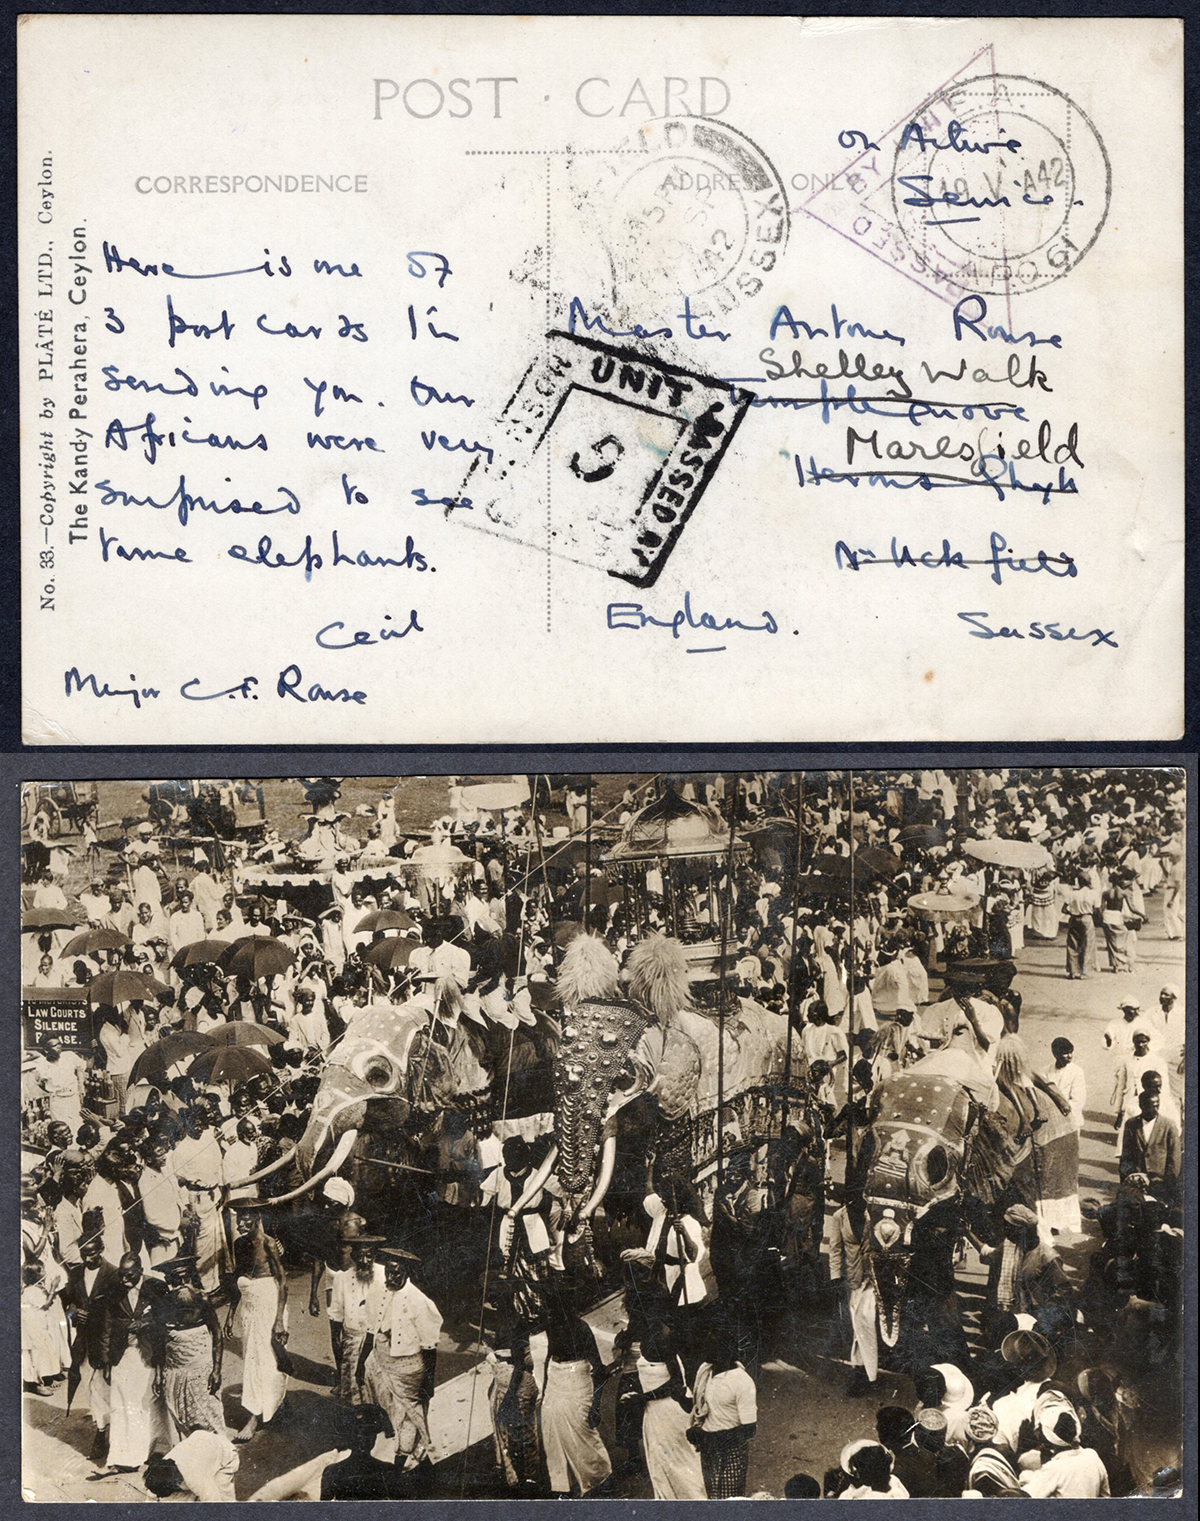 POST CARD
CORRESPONDENCE
ADDRESS ONLY
On Active
Service.
E.A.
19 V A42
APO 61
BY
PASSED
FIELD
SP
42
SUSSEX
Here is one of
3 post cards I'm
sending you. Our
Africans were very
surprised to see
tame elephants.
Cecil
Major C.F. Rouse
Master Antony Rouse
Shelley Walk
Temple Grove
Maresfield
Herons Ghyll
Nr Uckfield
England. Sussex
UNIT
PASSED BY
5
No. 33.—Copyright by PLÂTÉ LTD., Ceylon.
The Kandy Perahera, Ceylon.
LAW COURTS
SILENCE